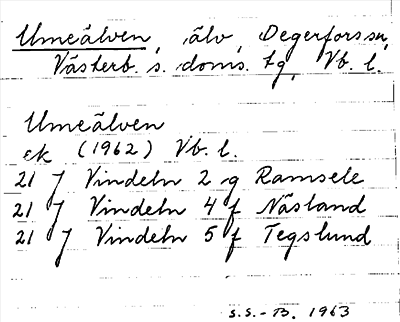 Umeälven, älv, Degerfors sn,
Västerb. s. doms. tg, Vb. l.
Umeälven
ek (1962) Vb. l.
21 J Vindeln 2 g Ramsele
21 J Vindeln 4 f Näsland
21 J Vindeln 5 f Tegslund
S.S.-B. 1963